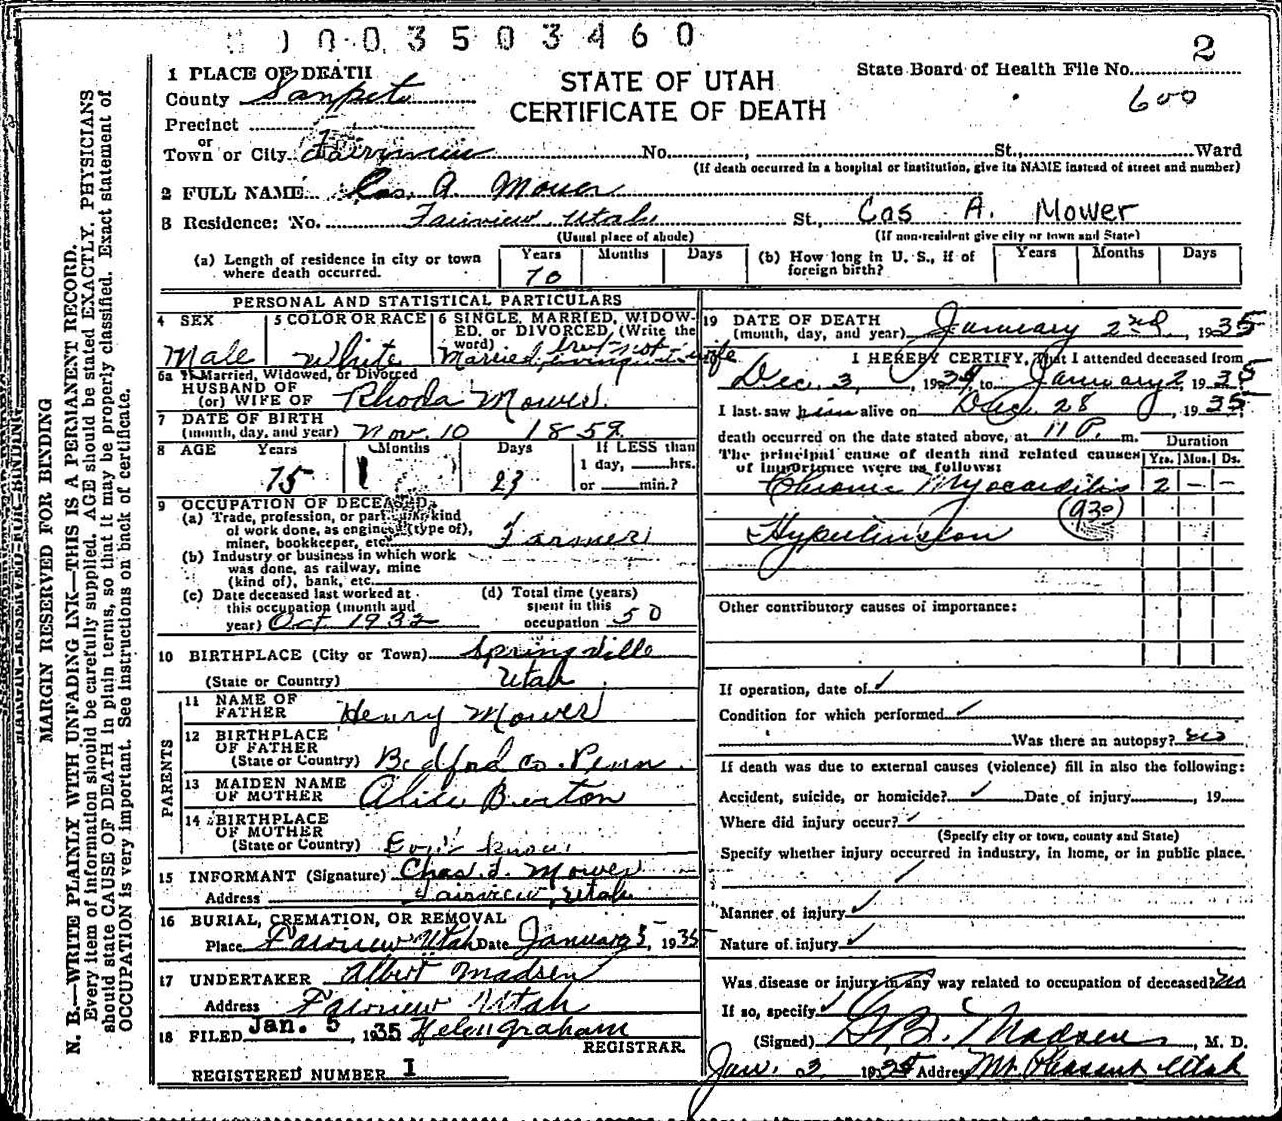 0003503460
2
1 PLACE OF DEATH
STATE OF UTAH
CERTIFICATE OF DEATH
State Board of Health File No.
600
County Sanpete
Precinct
or
Town or City Fairview No. , St., Ward
(If death occurred in a hospital or institution, give its NAME instead of street and number)
2 FULL NAME Cas. A. Mower
3 Residence: No. Fairview, Utah St., Cas A. Mower
(Usual place of abode) (If non-resident give city or town and State)
(a) Length of residence in city or town where death occurred. Years 70 Months Days (b) How long in U. S., if of foreign birth? Years Months Days
PERSONAL AND STATISTICAL PARTICULARS
4 SEX Male
5 COLOR OR RACE White
6 SINGLE, MARRIED, WIDOWED, or DIVORCED, (Write the word) Married, but not living with wife
6a If Married, Widowed, or Divorced
HUSBAND OF
(or) WIFE OF Rhoda Mower
7 DATE OF BIRTH
(month, day, and year) Nov. 10 1859
8 AGE Years 75 Months 1 Days 23 If LESS than 1 day, hrs. or min.?
9 OCCUPATION OF DECEASED
(a) Trade, profession, or particular kind
of work done, as engineer (type of),
miner, bookkeeper, etc. Farmer
(b) Industry or business in which work
was done, as railway, mine
(kind of), bank, etc.
(c) Date deceased last worked at
this occupation (month and
year) Oct 1932
(d) Total time (years)
spent in this
occupation 50
10 BIRTHPLACE (City or Town) Springville
(State or Country) Utah
PARENTS
11 NAME OF
FATHER Henry Mower
12 BIRTHPLACE
OF FATHER
(State or Country) Bedford Co. Penn.
13 MAIDEN NAME
OF MOTHER Alice Burton
14 BIRTHPLACE
OF MOTHER
(State or Country) know
15 INFORMANT (Signature) Chas. Mower
Address Fairview, Utah
16 BURIAL, CREMATION, OR REMOVAL
Place Fairview Utah Date January 5, 1935
17 UNDERTAKER Albert Madsen
Address Fairview Utah
18 FILED Jan. 5, 1935 Helen Graham
REGISTRAR.
REGISTERED NUMBER 1
19 DATE OF DEATH
(month, day, and year) January 2nd, 1935
I HEREBY CERTIFY, That I attended deceased from
Dec. 3, 1934, to January 2, 1935
I last saw him alive on Dec. 28, 1935
death occurred on the date stated above, at 11 P. m. Duration
The principal cause of death and related causes
of importance were as follows: Yrs. Mos. Ds.
Chronic Myocarditis 2 - -
(930)
Hypertension
Other contributory causes of importance:
If operation, date of ✓
Condition for which performed ✓
Was there an autopsy?
If death was due to external causes (violence) fill in also the following:
Accident, suicide, or homicide? ✓ Date of injury , 19
Where did injury occur? ✓
(Specify city or town, county and State)
Specify whether injury occurred in industry, in home, or in public place.
Manner of injury ✓
Nature of injury ✓
Was disease or injury in any way related to occupation of deceased?
If so, specify ✓
(Signed) Madsen, M. D.
Jan. 2 1935 Address Mt. Pleasant Utah
MARGIN RESERVED FOR BINDING
N. B.—WRITE PLAINLY WITH UNFADING INK—THIS IS A PERMANENT RECORD.
Every item of information should be carefully supplied. AGE should be stated EXACTLY. PHYSICIANS
should state CAUSE OF DEATH in plain terms, so that it may be properly classified. Exact statement of
OCCUPATION is very important. See instructions on back of certificate.